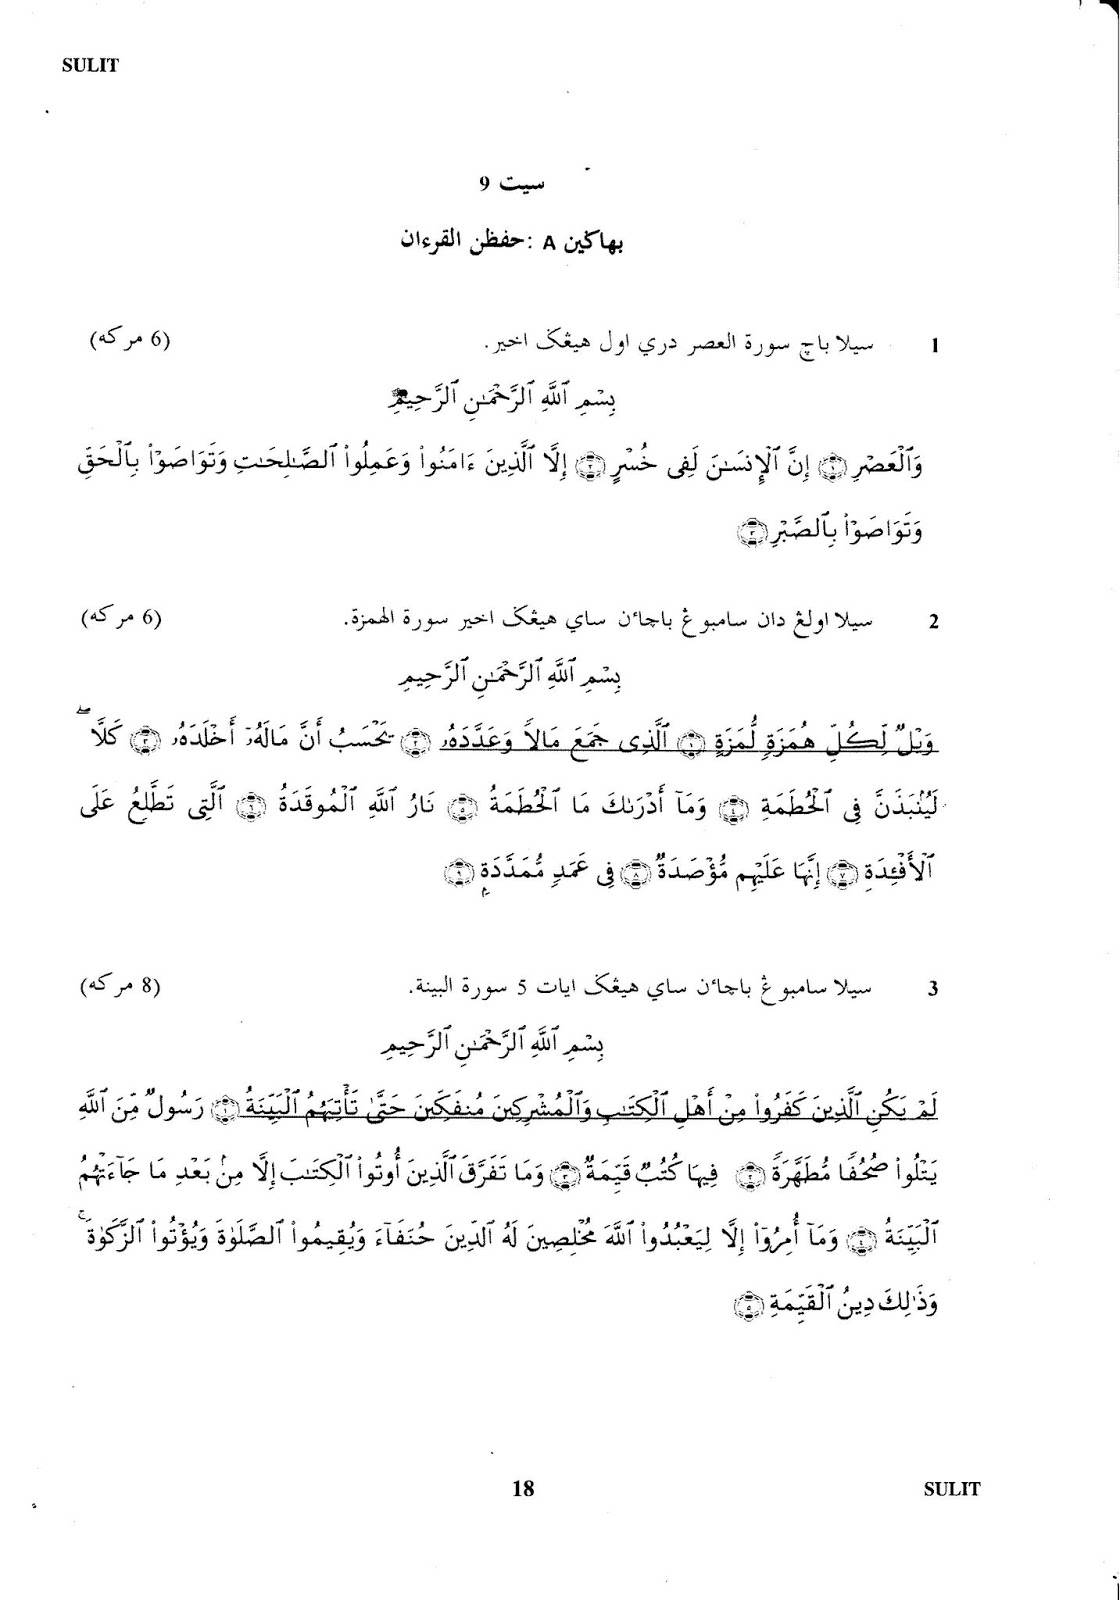 SULIT
سيت 9
بهاڬين A : حفظن القرءان
1 سيلا باچ سورة العصر دري اول هيڠݢ اخير. (6 مركه)
بِسْمِ ٱللَّهِ ٱلرَّحْمَـٰنِ ٱلرَّحِيمِ
وَٱلْعَصْرِ ۝١ إِنَّ ٱلْإِنسَـٰنَ لَفِى خُسْرٍ ۝٢ إِلَّا ٱلَّذِينَ ءَامَنُوا۟ وَعَمِلُوا۟ ٱلصَّـٰلِحَـٰتِ وَتَوَاصَوْا۟ بِٱلْحَقِّ
وَتَوَاصَوْا۟ بِٱلصَّبْرِ ۝٣
2 سيلا اولڠ دان سامبوڠ باچاءن ساي هيڠݢ اخير سورة الهمزة. (6 مركه)
بِسْمِ ٱللَّهِ ٱلرَّحْمَـٰنِ ٱلرَّحِيمِ
وَيْلٌ لِّكُلِّ هُمَزَةٍ لُّمَزَةٍ ۝١ ٱلَّذِى جَمَعَ مَالًا وَعَدَّدَهُۥ ۝٢ يَحْسَبُ أَنَّ مَالَهُۥٓ أَخْلَدَهُۥ ۝٣ كَلَّا ۖ
لَيُنۢبَذَنَّ فِى ٱلْحُطَمَةِ ۝٤ وَمَآ أَدْرَىٰكَ مَا ٱلْحُطَمَةُ ۝٥ نَارُ ٱللَّهِ ٱلْمُوقَدَةُ ۝٦ ٱلَّتِى تَطَّلِعُ عَلَى
ٱلْأَفْـِٔدَةِ ۝٧ إِنَّهَا عَلَيْهِم مُّؤْصَدَةٌ ۝٨ فِى عَمَدٍ مُّمَدَّدَةٍۭ ۝٩
3 سيلا سامبوڠ باچاءن ساي هيڠݢ ايات 5 سورة البينة. (8 مركه)
بِسْمِ ٱللَّهِ ٱلرَّحْمَـٰنِ ٱلرَّحِيمِ
لَمْ يَكُنِ ٱلَّذِينَ كَفَرُوا۟ مِنْ أَهْلِ ٱلْكِتَـٰبِ وَٱلْمُشْرِكِينَ مُنفَكِّينَ حَتَّىٰ تَأْتِيَهُمُ ٱلْبَيِّنَةُ ۝١ رَسُولٌ مِّنَ ٱللَّهِ
يَتْلُوا۟ صُحُفًا مُّطَهَّرَةً ۝٢ فِيهَا كُتُبٌ قَيِّمَةٌ ۝٣ وَمَا تَفَرَّقَ ٱلَّذِينَ أُوتُوا۟ ٱلْكِتَـٰبَ إِلَّا مِنۢ بَعْدِ مَا جَآءَتْهُمُ
ٱلْبَيِّنَةُ ۝٤ وَمَآ أُمِرُوٓا۟ إِلَّا لِيَعْبُدُوا۟ ٱللَّهَ مُخْلِصِينَ لَهُ ٱلدِّينَ حُنَفَآءَ وَيُقِيمُوا۟ ٱلصَّلَوٰةَ وَيُؤْتُوا۟ ٱلزَّكَوٰةَ ۚ
وَذَٰلِكَ دِينُ ٱلْقَيِّمَةِ ۝٥
18
SULIT